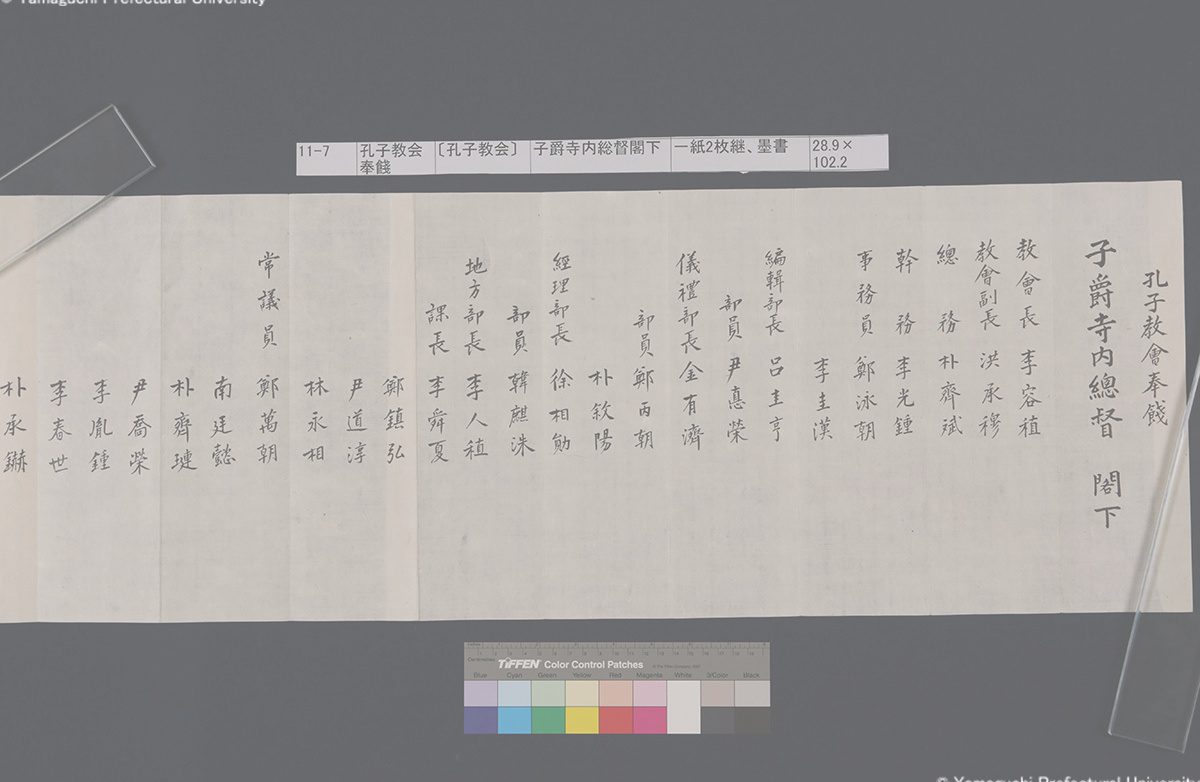 © Yamaguchi Prefectural University
11-7
孔子教会
奉餞
〔孔子教会〕
子爵寺内総督閣下
一紙2枚継、墨書
28.9×
102.2
孔子教會奉餞
子爵寺内總督 閣下
教會長 李容稙
教會副長 洪承穆
總務 朴齊斌
幹務 李光鍾
事務員 鄭泳朝
李圭漢
編輯部長 呂圭亨
部員 尹憙榮
儀禮部長 金有濟
部員 鄭丙朝
朴欽陽
經理部長 徐相勛
部員 韓麒洙
地方部長 李人稙
課長 李舜夏
鄭鎮弘
尹道淳
林永相
常議員 鄭萬朝
南廷懿
朴齊璉
尹喬榮
李胤鍾
李春世
朴承
TIFFEN Color Control Patches
Blue Cyan Green Yellow Red Magenta White 3/Color Black
© Yamaguchi Prefectural University